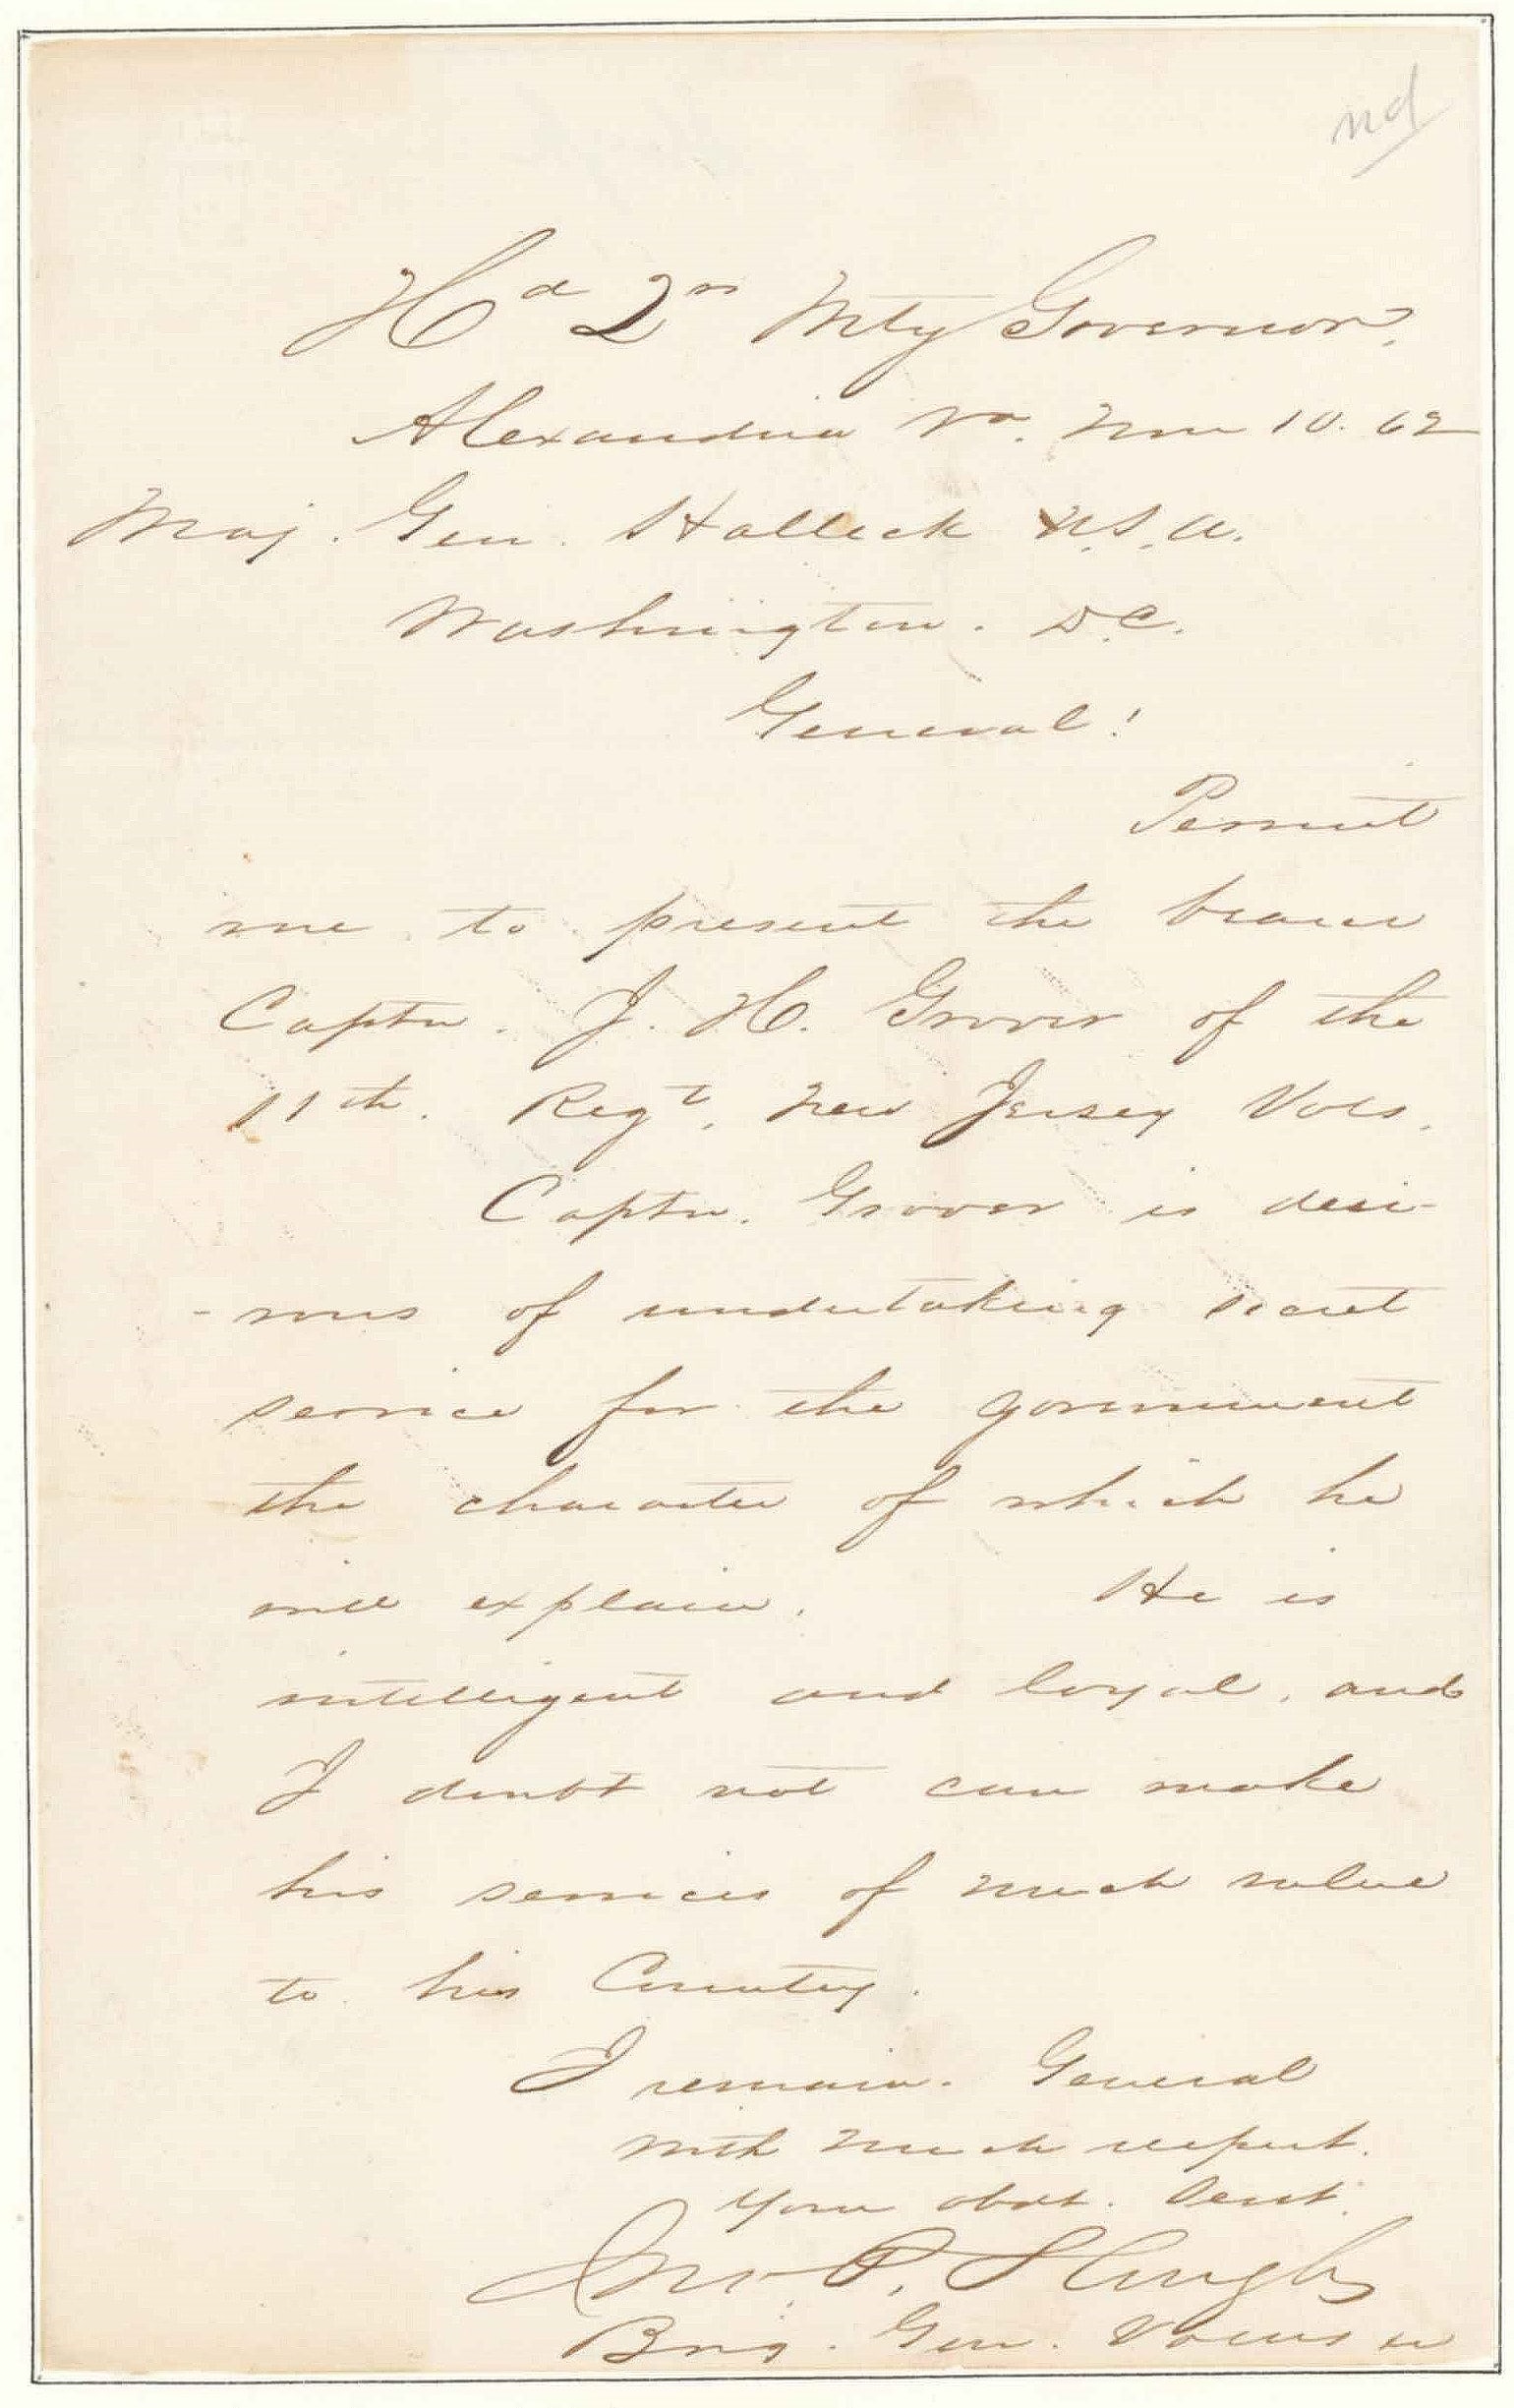 nd
Hd Qrs Mty Governor,
Alexandria Va. Nov 10. 62
Maj. Gen. Halleck U.S.A.
Washington. D.C.
General!
Permit
me to present the bearer
Captn. J. H. Grover of the
11th. Regt. New Jersey Vols.
Captn. Grover is desi-
-rous of undertaking secret
service for the government
the character of which he
will explain. He is
intelligent and loyal, and
I doubt not can make
his services of much value
to his Country.
I remain. General
with much respect.
Your obdt. Servt.
Jno. P. Slough
Brig. Gen. Vols